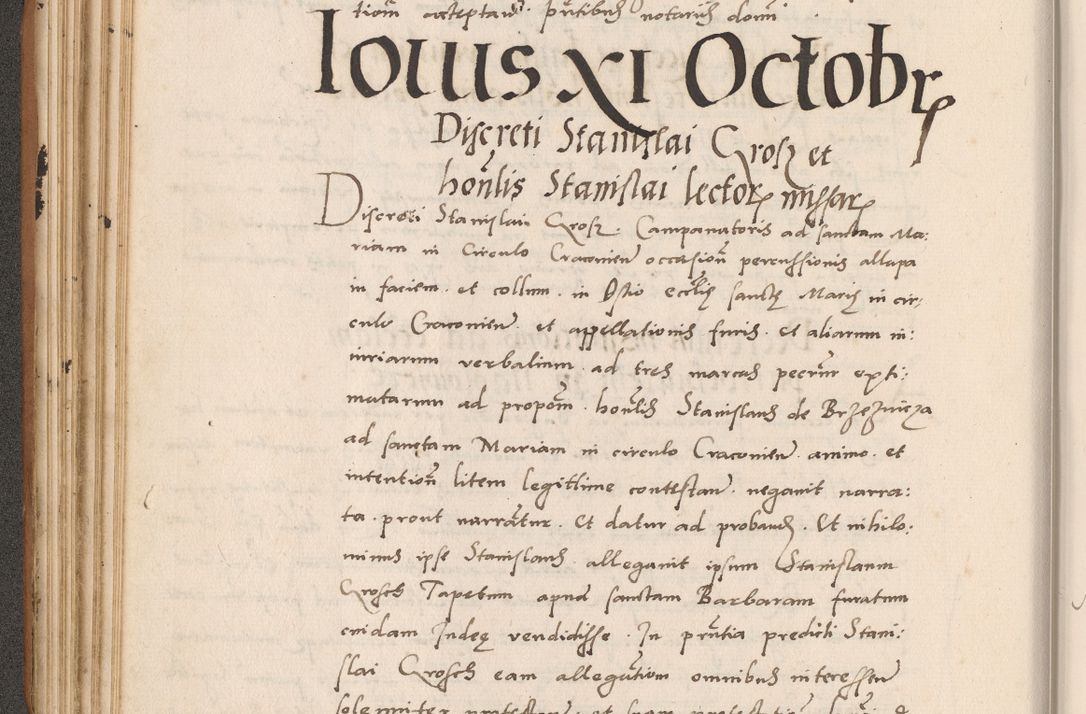 tiom acceptand. pntibus notariis domi
Iouis XI Octobr
Discreti Stanislai Grosz et
honlis Stanislai lector missar
Discreti Stanislai Grosz. Campanatoris ad sanctam Ma:
riam in Circulo Cracovien occasion percussionis allapa
in faciem. et collum. in Ostio ecclie sancte Marie in cir:
culo Cracovien et appellationis furis. et aliarum in:
iuriarum verbalium. ad tres marcas pecciar exti:
matarum ad propom. honlis Stanislaus de Brzeznicza
ad sanctam Mariam in circulo Cracovien. animo. et
intention litem legittime contestan. negavit narra:
ta. prout narrantur. Et datur ad proband. Et nihilo:
minus ipse Stanislaus allegavit ipsum Stanislaum
Grosch Tapetum apud sanctam Barbaram furatum
cuidam Iudeę vendidisse. In pntia predicti Stani:
slai Grosch eam allegation omnibus interessen
solemniter protestan. et suam